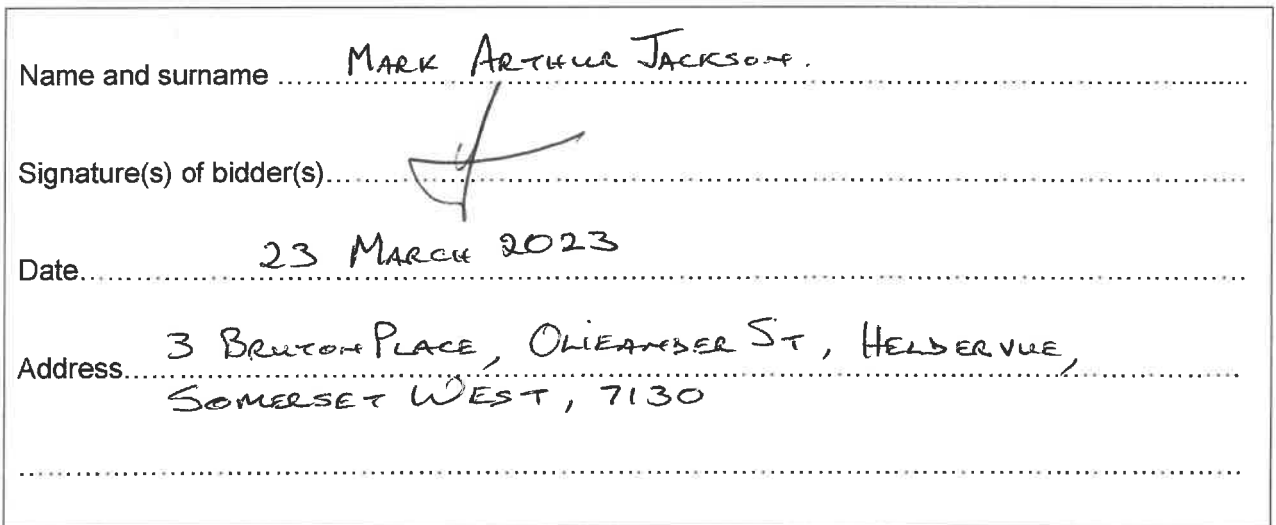 Name and surname ...... MARK ARTHUR JACKSON.
Signature(s) of bidder(s)......
Date...... 23 MARCH 2023
Address...... 3 BRUTON PLACE, OLIEANDER ST, HELDERVUE,
SOMERSET WEST, 7130